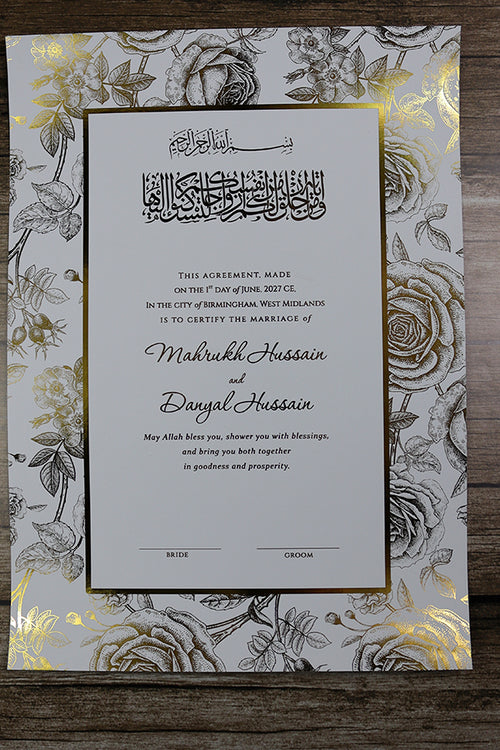 بسم الله الرحمن الرحيم
ومن آياته أن خلق لكم من أنفسكم أزواجا لتسكنوا إليها
THIS AGREEMENT, MADE
ON THE 1ST DAY OF JUNE, 2027 CE,
IN THE CITY OF BIRMINGHAM, WEST MIDLANDS
IS TO CERTIFY THE MARRIAGE OF
Mahrukh Hussain
and
Danyal Hussain
May Allah bless you, shower you with blessings,
and bring you both together
in goodness and prosperity.
BRIDE GROOM